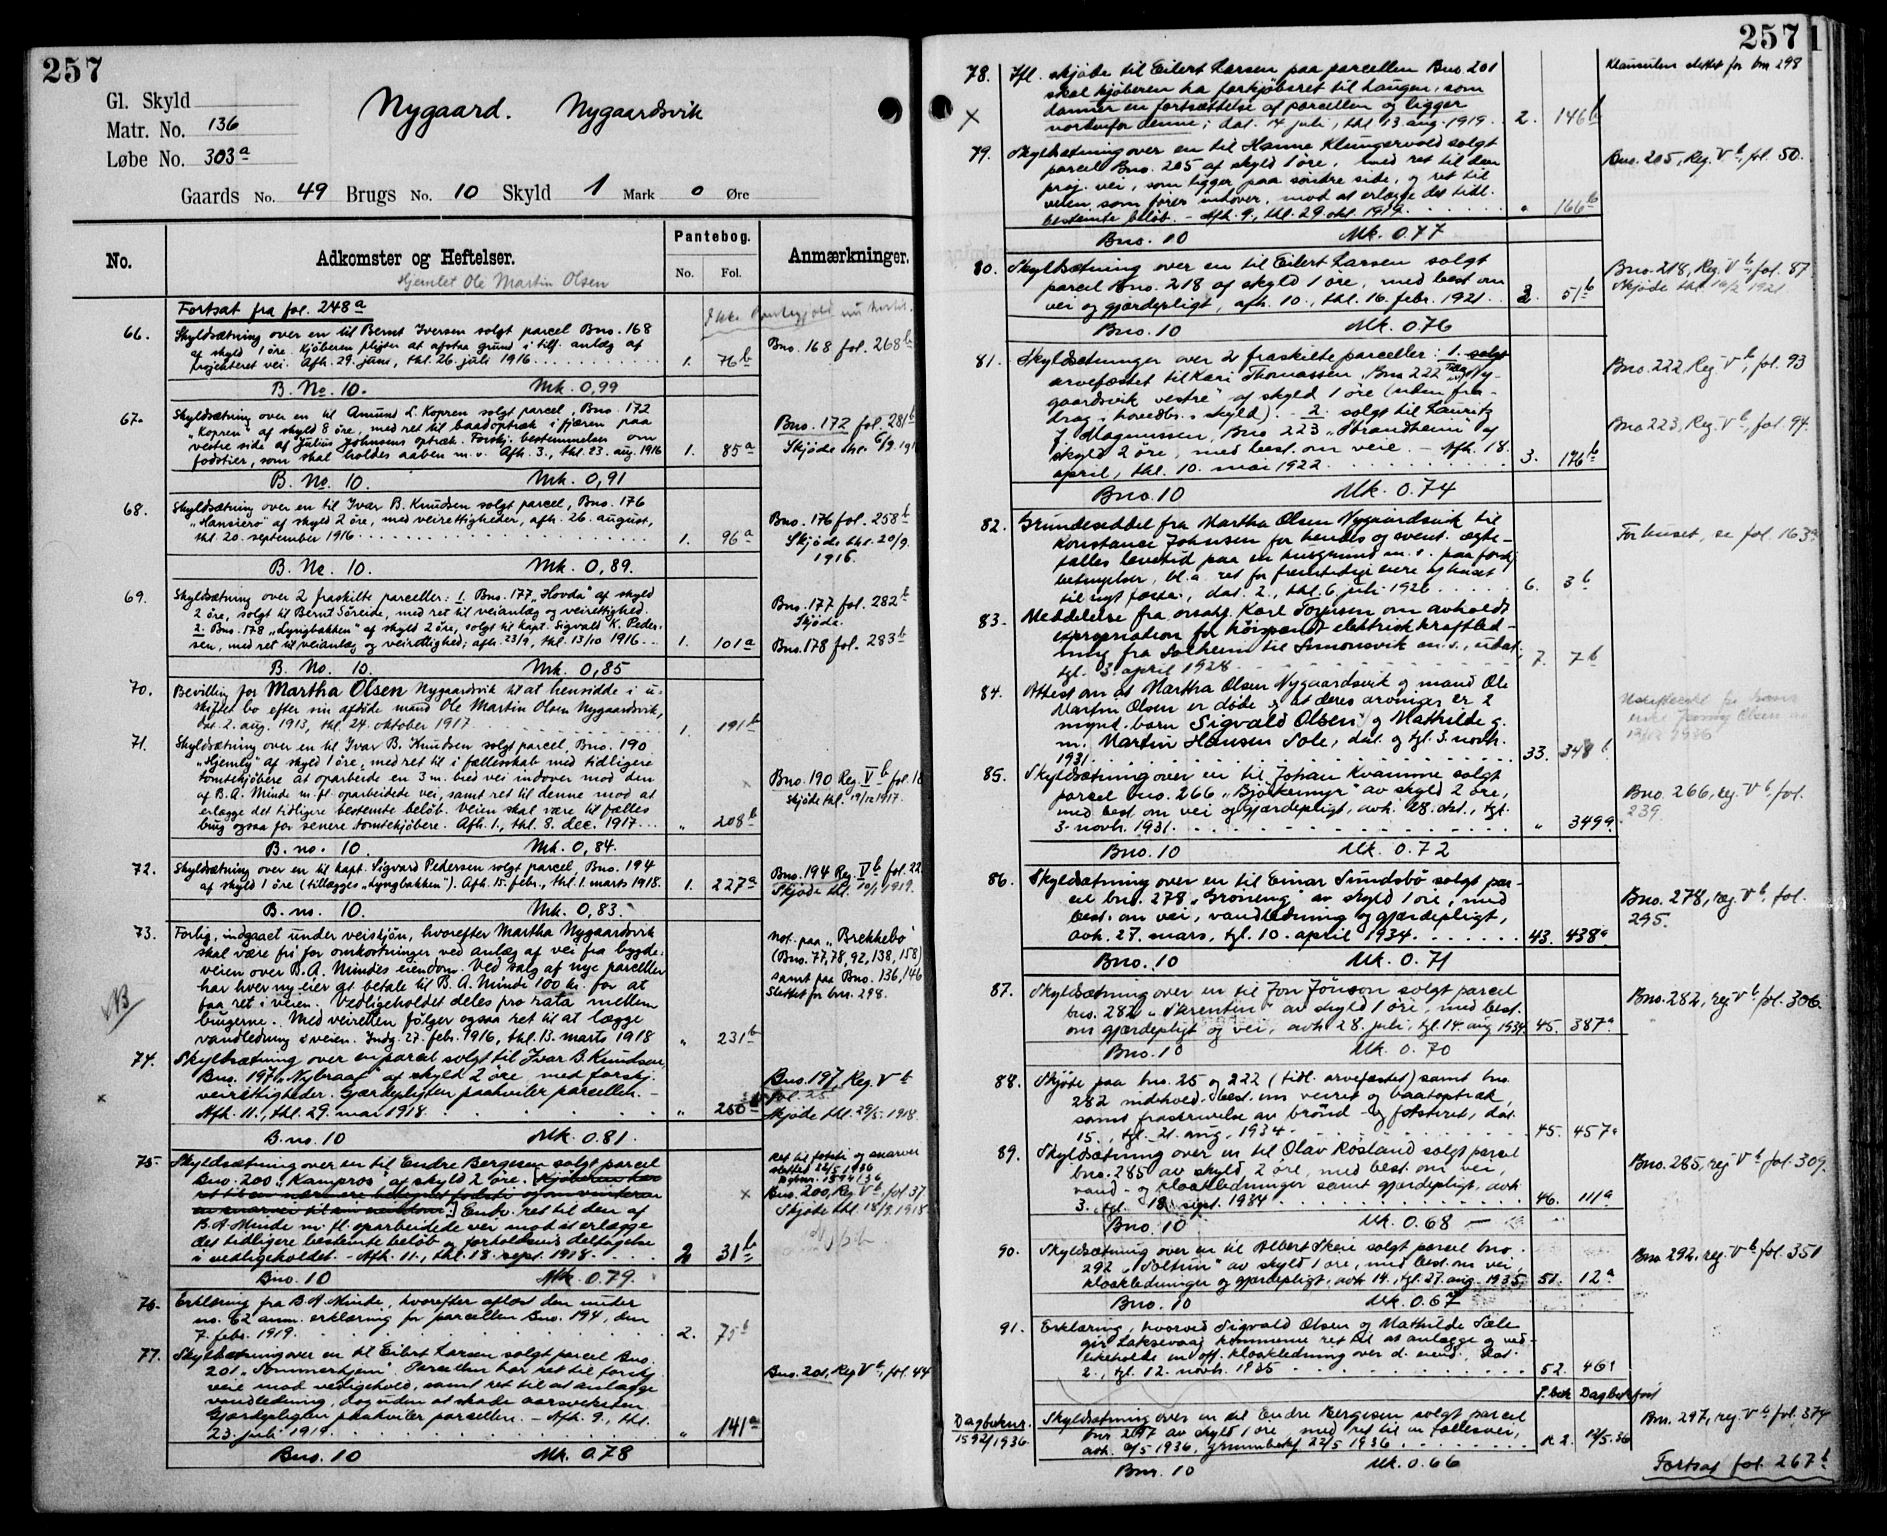 257
Gl. Skyld
Matr. No. 136
Løbe No. 303a
Nygaard. Nygaardsvik
Gaards No. 49 Brugs No. 10 Skyld 1 Mark 0 Øre
No. Adkomster og Heftelser. Pantebog. No. Fol. Anmærkninger.
Hjemlet Ole Martin Olsen
Fortsat fra fol. 248a
66. Skyldsætning over en til Bernt Iversen solgt parcel Bno. 168
af skyld 1 øre. Kjøberen pligter at afstaa grund i tilf. anlæg af
projekteret vei. Afh. 29. juni, thl. 26. juli 1916 1. 76b
Bno. 168 fol. 268b
B. No. 10. Mk. 0,99
67. Skyldsætning over en til Amund L. Kopren solgt parcel, Bno. 172
"Kopren" af skyld 8 øre, med ret til baadoptræk i fjæren paa
vestre side af Julius Johnsens optræk. Forskj. bestemmelser om
fodstier, som skal holdes aaben m.v. Afh. 3., thl. 23. aug. 1916 1. 85a
Bno. 172 fol. 281b
B. No. 10. Mk. 0,91
68. Skyldsætning over en til Ivar B. Knudsen solgt parcel, Bno. 176
"Hansiero" af skyld 2 øre, med veirettigheder, afh. 26. august,
thl. 20. september 1916 1. 96a
Bno. 176 fol. 258b
Skjøde thl. 20/9.
1916.
B. No. 10. Mk. 0,89.
69. Skyldsætning over 2 fraskilte parceller: 1. Bno. 177 "Hovda" af skyld
2 øre, solgt til Bernt Söreide, med ret til veianlæg og veirettighed.
2. Bno. 178 "Lyngbakken" af skyld 2 øre, solgt til kapt. Sigvald K. Peder-
sen, med ret til veianlæg og veirettighed; afh. 23/9, thl. 13/10 1916 1. 101a
Bno. 177 fol. 282b
Skjøde.
Bno. 178 fol. 283b
B. No. 10. Mk. 0,85
70. Bevilling for Martha Olsen Nygaardsvik til at hensidde i u-
skiftet bo efter sin afdöde mand Ole Martin Olsen Nygaardsvik,
dat. 2. aug. 1913, thl. 24. oktober 1917 1. 191b
71. Skyldsætning over en til Ivar B. Knudsen solgt parcel, Bno. 190
"Hjemly" af skyld 1 øre, med ret til i fællesskab med tidligere
tomtekjøbere at oparbeide en 3 m. bred vei indover mod den
af B. A. Minde m. fl. oparbeidede vei, samt ret til denne mod at
erlægge det tidligere bestemte beløb. Veien skal være til fælles
brug ogsaa for senere tomtekjøbere. Afh. 1., thl. 8. dec. 1917 " 208b
Bno. 190 Reg. Vb fol. 18
Skjøde thl. 19/12 1917.
B. no. 10. Mk. 0,84.
72. Skyldsætning over en til kapt. Sigvard Pedersen solgt parcel, Bno. 194
af skyld 1 øre (tillægges "Lyngbakken"). Afh. 15. febr., thl. 1. marts 1918. 1. 227a
Bno. 194 Reg. Vb fol. 22
B. no. 10. Mk. 0,83.
73. Forlig, indgaaet under veiskjön, hvorefter Martha Nygaardsvik
skal være fri for omkostninger ved anlæg af vei fra bygde-
veien over B. A. Mindes eiendom. Ved salg af nye parceller
har hver ny eier at betale til B. A. Minde 100 kr. for at
faa ret i veien. Vedligeholdet deles pro rata mellem
brugerne. Med veiretten følger ogsaa ret til at lægge
vandledning i veien. Indg. 27. febr. 1916, thl. 13. marts 1918 " 231b
Not. paa "Brekkebo"
(Bno. 77, 78, 92, 138, 158)
samt paa Bno. 136, 146
Slettet for bnr. 298.
NB
74. Skyldsætning over en parcel solgt til Ivar B. Knudsen,
Bno. 197 "Nybraat" af skyld 2 øre med forskj.
veirettigheder. Gjærdepligten paahviler parcellen. -
Afh. 11., thl. 29. mai 1918. " 250
Bno. 197, Reg. Vb
fol. 25
Skjøde thl. 29/5. 1918.
B. no. 10 Mk. 0.81.
75. Skyldsætning over en til Endre Bergesen solgt parcel
Bno. 200 "Kampros" af skyld 2 øre. Kjøberen har
Endv. ret til den af
B. A. Minde m. fl. oparbeidede vei mod at erlægge
det tidligere bestemte beløb og forholdsvis deltagelse
i vedligeholdet. - Afh. 11., thl. 18. sept. 1918. 2 31b
Ret til fotsti og snarvei
slettet 22/5 1936
Bno. 200, Reg. Vb, fol. 37
Skjøde thl. 18/9. 1918
Bno. 10 Mk. 0.79.
76. Erklæring fra B. A. Minde, hvorefter aflöst den under
no. 62 anm. erklæring for parcellen Bno. 194, den
7. febr. 1919. 2. 75b
77. Skyldsætning over en til Eilert Larsen solgt parcel Bno.
201 "Sommerhjem". Parcellen har ret til forskj.
veie mod vedligehold, samt ret til at anlægge
vandledning, dog uden at skade aarsveksten.
Gjærdepligten paahviler parcellen. - Afh. 9., thl.
23. juli 1919. " 141a
Bno. 201, Reg. Vb, fol. 44
Bno. 10 Mk. 0.78
257
78. Ifl. skjøde til Eilert Larsen paa parcellen Bno. 201
skal kjøberen ha forkjøbsret til haugen, som
danner en fortsættelse af parcellen og ligger
nordenfor denne; dat. 14 juli, thl. 13 aug. 1919. 2. 146b
Klausulen slettet for bnr 298
79. Skyldsætning over en til Hanne Klungervold solgt
parcel Bno. 205 af skyld 1 øre, med ret til den
proj. vei, som ligger paa søndre side, og ret til
veien, som fører indover, mod at erlægge det tidl.
bestemte beløb. - Afh. 9., thl. 29. okt. 1919. " 166b
Bno. 205, Reg. Vb, fol. 50.
Bno. 10 Mk. 0.77
80. Skyldsætning over en til Eilert Larsen solgt
parcel Bno. 218 af skyld 1 øre, med best. om
vei og gjærdepligt, afh. 10., thl. 16. febr. 1921. 3. 51b
Bno. 218, Reg. Vb, fol. 87.
Skjøde thl. 16/2 1921
Bno. 10 Mk. 0.76
81. Skyldsætninger over 2 fraskilte parceller: 1. solgt
arvefæstet til Kari Thomassen, Bno 222 "Ny-
gaardsvik vestre" af skyld 1 øre (uden fra-
drag i hovedbr.s skyld). - 2. solgt til Lauritz
J. Magnussen, Bno 223 "Strandheim" af
skyld 2 øre, med best. om veie. - Afh. 18.
april, thl. 10. mai 1922. 3. 176b
Bno. 222, Reg. Vb, fol. 93
Bno 223, Reg. Vb, fol. 94.
Bno. 10 Mk. 0.74
82. Grundeseddel fra Martha Olsen Nygaardsvik til
Konstance Johnsen for hendes og event. ægte-
fælles levetid paa en husgrund m. v. paa forskj
betingelser, bl. a. ret for fremtidige eiere af huset
til nyt fæste, dat. 2., thl. 6. juli 1926. 6. 3b
For huset, se fol. 163a
83. Meddelelse fra orsakf. Karl Torjusen om avholdt
expropriation for höispændt elektrisk kraftled-
ning fra Solheim til Simonsvik m. v., udat.,
tgl. 3. april 1928 7. 7b
84. Attest om at Martha Olsen Nygaardsvik og mand Ole
Martin Olsen er døde og at deres arvinger er 2
mynd. barn Sigvald Olsen og Mathilde g.
m. Martin Hansen Sole, dat. og tgl. 3. novbr.
1931 33. 349
85. Skyldsætning over en til Johan Kvamme solgt
parcel bno. 266 "Bjørkemyr" av skyld 2 øre,
med best. om vei og gjærdepligt, avh. 28. okt., tgl.
3. novbr. 1931. " 349a
Bno. 266, reg. Vb, fol.
239.
Bno. 10 Mk. 0.72
86. Skyldsætning over en til Einar Sundsbö solgt par-
cel bno. 278 "Groneng" av skyld 1 øre, med
best. om vei, vandledning og gjærdepligt,
avh. 27. mars, tgl. 10. april 1934. 43. 438a
Bno. 278, reg. Vb, fol.
295.
Bno. 10 Mk. 0.71
87. Skyldsætning over en til Jon Jönson solgt parcel
bno. 282 av skyld 1 øre, med best.
om gjærdepligt og vei, avh. 28. juli, tgl. 14. aug 1934. 45. 387a
Bno. 282, reg Vb fol. 306.
Bno. 10 Mk. 0.70
88. Skjöte paa bno. 25 og 222 (tidl. arvefæstet) samt bno.
282 best. om veiret og baatoptræk,
samt fraskrivelse av brönd og fotstiret, dat.
15., tgl. 21. aug. 1934. 45. 457a
89. Skyldsætning over en til Olav Røsland solgt parcel
bno. 285 av skyld 2 øre, med best. om vei,
vand- og kloakledninger samt gjærdepligt, avh.
3., tgl. 18. sept. 1934 46. 111a
Bno. 285, reg. Vb fol. 309.
Bno. 10 Mk. 0.68
90. Skyldsætning over en til Albert Skeie solgt parcel bno.
292 "Soltun" av skyld 1 øre, med best. om vei,
kloakledninger og gjærdepligt, avh. 14., tgl. 27. aug. 1935. 51. 12a
Bno. 292, reg. Vb fol. 351
Bno. 10 Mk. 0.67
91. Erklæring, hvorved Sigvald Olsen og Mathilde Sole
gir Laksevaag kommune ret til at anlægge og ved-
likeholde en off. kloakledning over d. eiend. Dat.
2., tgl. 12. novbr. 1935 52. 46a
Dagbokført
Dagboknr.
1592/1936
Skyldsætning over en til Endre Bergesen solgt parcel
bnr 297 av skyld 1 øre med ret til en fællesvei,
avh. 1936, grunnboks 22/5 1936
Bnr. 297, reg. Vb fol. 374
Bnr. 10 Mk. 0.66
Fortsat fol. 267b